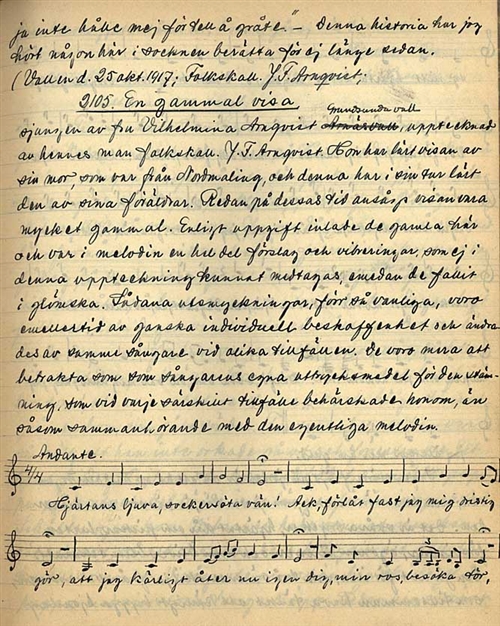 ja inte hålle mej för tell å gråte." — Denna historia har jag
hört någon här i socknen berätta för ej länge sedan.
(Vallen d. 25 okt. 1917; Folkskall. J.F. Arnqvist,
2105. En gammal visa
Grundsunda vall
sjungen av fru Vilhelmina Arnqvist Arnäsvall, upptecknad
av hennes man folkskall. J.F. Arnqvist. Hon har lärt visan av
sin mor som var från Nordmaling, och denna har i sin tur lärt
den av sina föräldrar. Redan på dessas tid ansågs visan vara
mycket gammal. Enligt uppgift inlade de gamla här
och var i melodin en hel del förslag och vibreringar, som ej i
denna uppteckning kunnat medtagas, emedan de fallit
i glömska. Sådana utsmyckningar, förr så vanliga, voro
emellertid av ganska individuell beskaffenhet och ändra-
des av samme sångare vid olika tillfällen. De voro mera att
betrakta som som sångarens egna uttrycksmedel för den stäm-
ning, som vid varje särskilt tillfälle behärskade honom, än
såsom sammanhörande med den egentliga melodin.
Andante.
4/4
Hjärtans ljuva, sockersöta vän! Ack, förlåt fast jag mig dristig
gör, att jag kärligt åter nu igen dig, min ros, besöka tör,